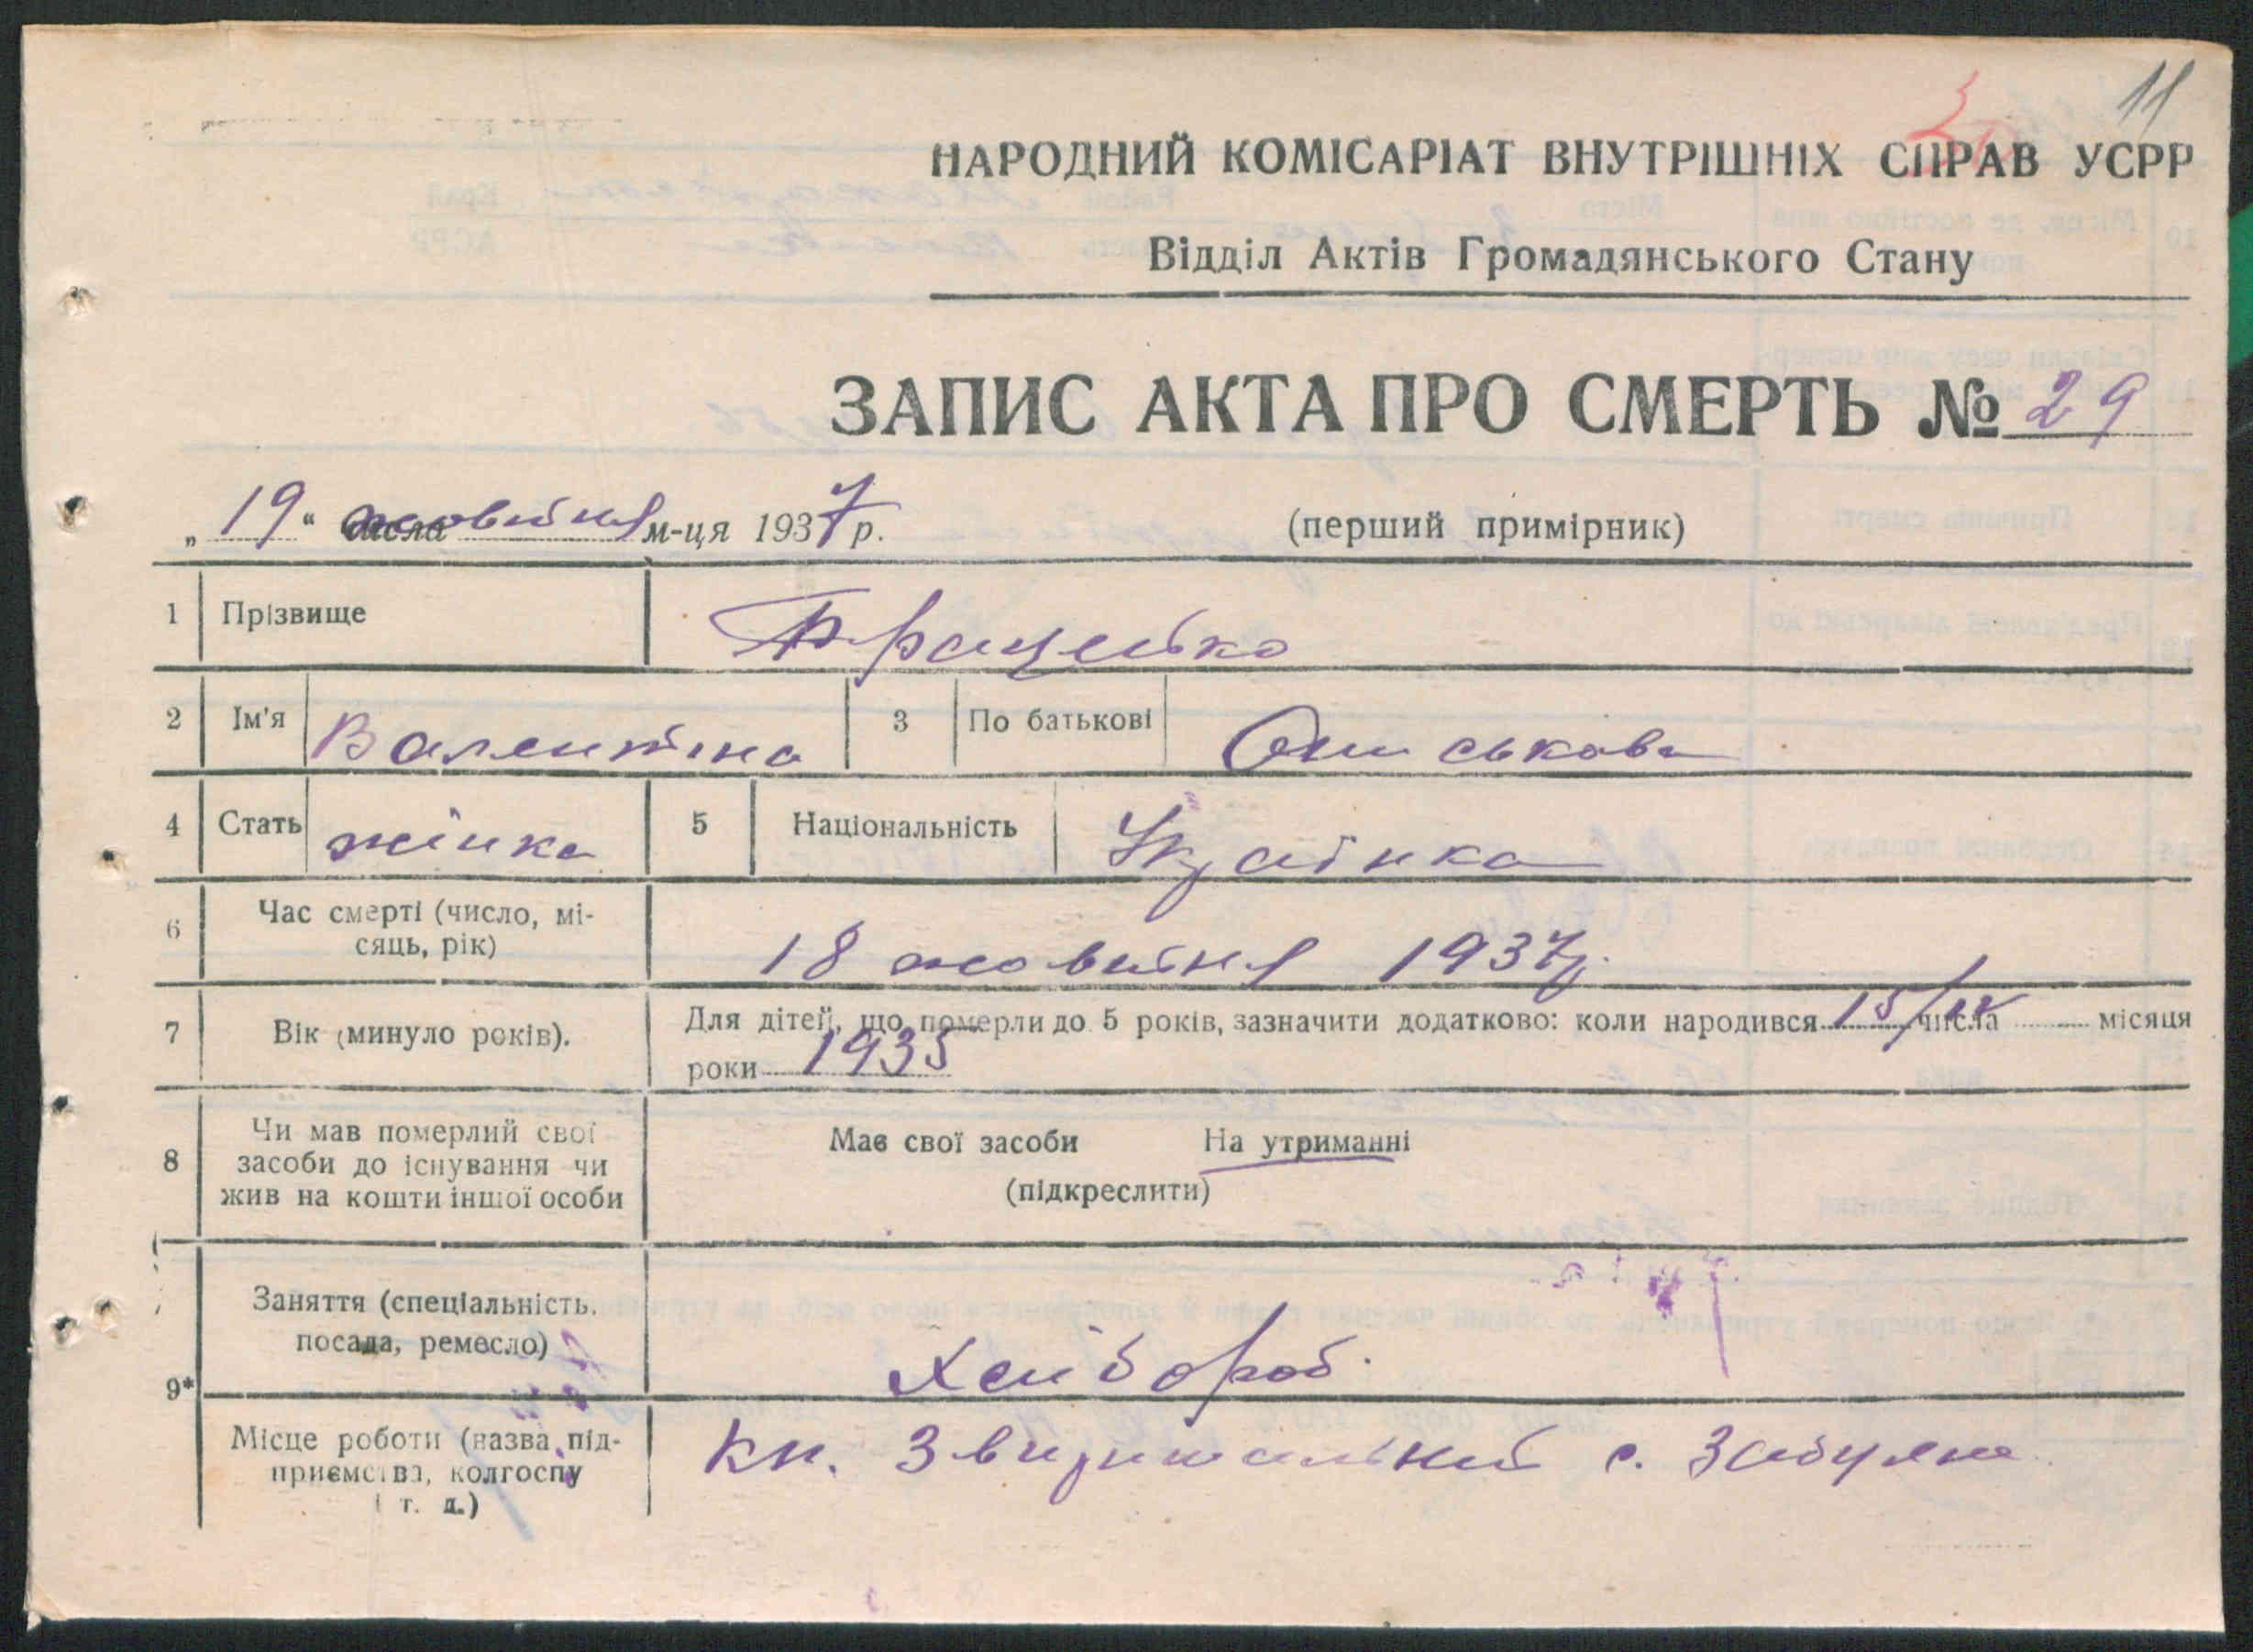 11
НАРОДНИЙ КОМІСАРІАТ ВНУТРІШНІХ СПРАВ УСРР
Відділ Актів Громадянського Стану
ЗАПИС АКТА ПРО СМЕРТЬ № 29
„19“ числа жовтня м-ця 1937 р. (перший примірник)
1 Прізвище
2 Ім'я Валентина 3 По батькові
4 Стать жінка 5 Національність Українка
6 Час смерті (число, мі-
сяць, рік) 18 жовтня 1937 р.
7 Вік (минуло років). Для дітей, що померли до 5 років, зазначити додатково: коли народився 15/ числа місяця
роки 1935
8 Чи мав померлий свої
засоби до існування чи
жив на кошти іншої особи
Має свої засоби На утриманні
(підкреслити)
9* Заняття (спеціальність.
посада, ремесло) Хлібороб.
Місце роботи (назва під-
приємства, колгоспу
і т. д.)
с.